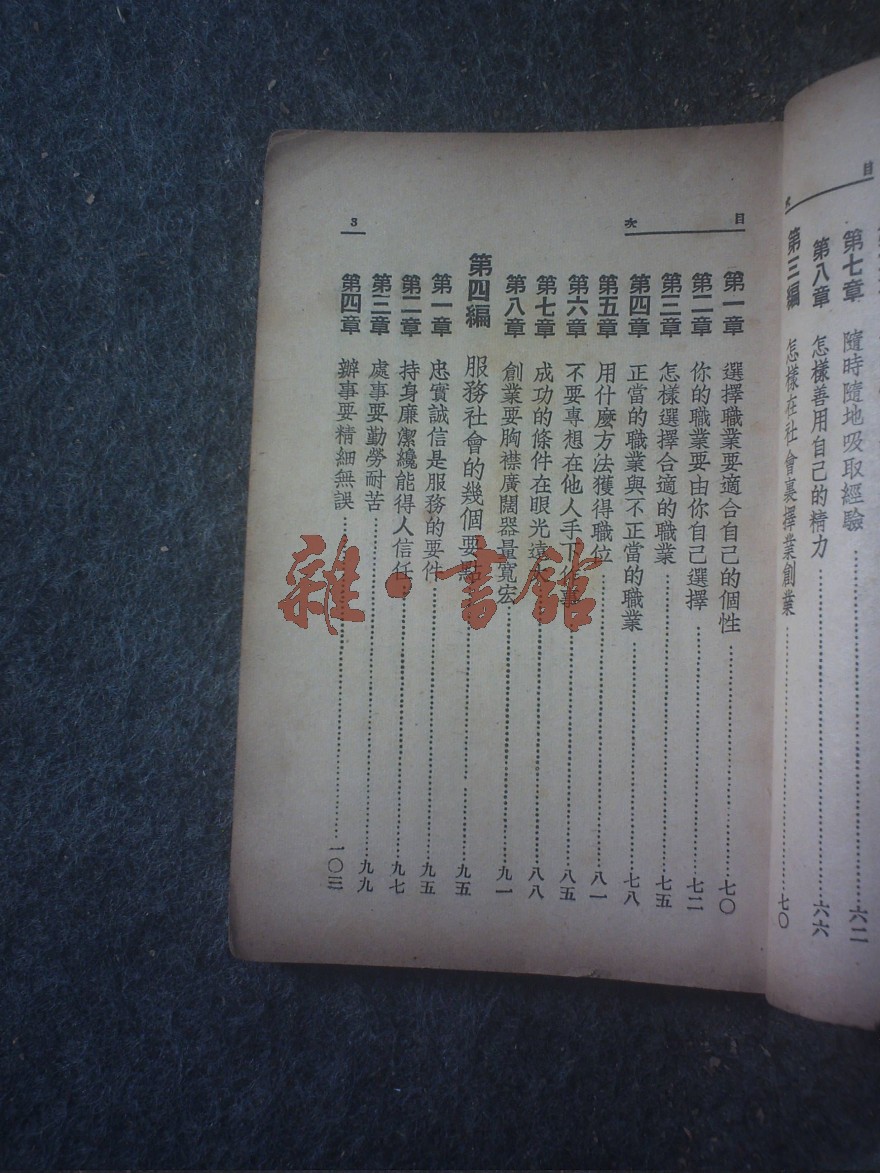 目
次
第七章 隨時隨地吸取經驗 六二
第八章 怎樣善用自己的精力 六六
第三編 怎樣在社會裏擇業創業 七〇
目 次
3
第一章 選擇職業要適合自己的個性 七〇
第二章 你的職業要由你自己選擇 七二
第三章 怎樣選擇合適的職業 七五
第四章 正當的職業與不正當的職業 七八
第五章 用什麼方法獲得職位 八一
第六章 不要專想在他人手下作事 八五
第七章 成功的條件在眼光遠大 八八
第八章 創業要胸襟廣闊器量寬宏 九一
第四編 服務社會的幾個要點 九五
第一章 忠實誠信是服務的要件 九五
第二章 持身廉潔纔能得人信任 九七
第三章 處事要勤勞耐苦 九九
第四章 辦事要精細無誤 一〇三
雜·書館